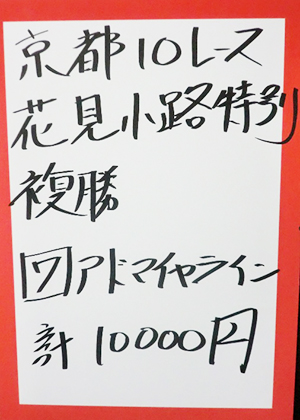 京都10レース
花見小路特別
複勝
7アドマイヤライン
計10000円